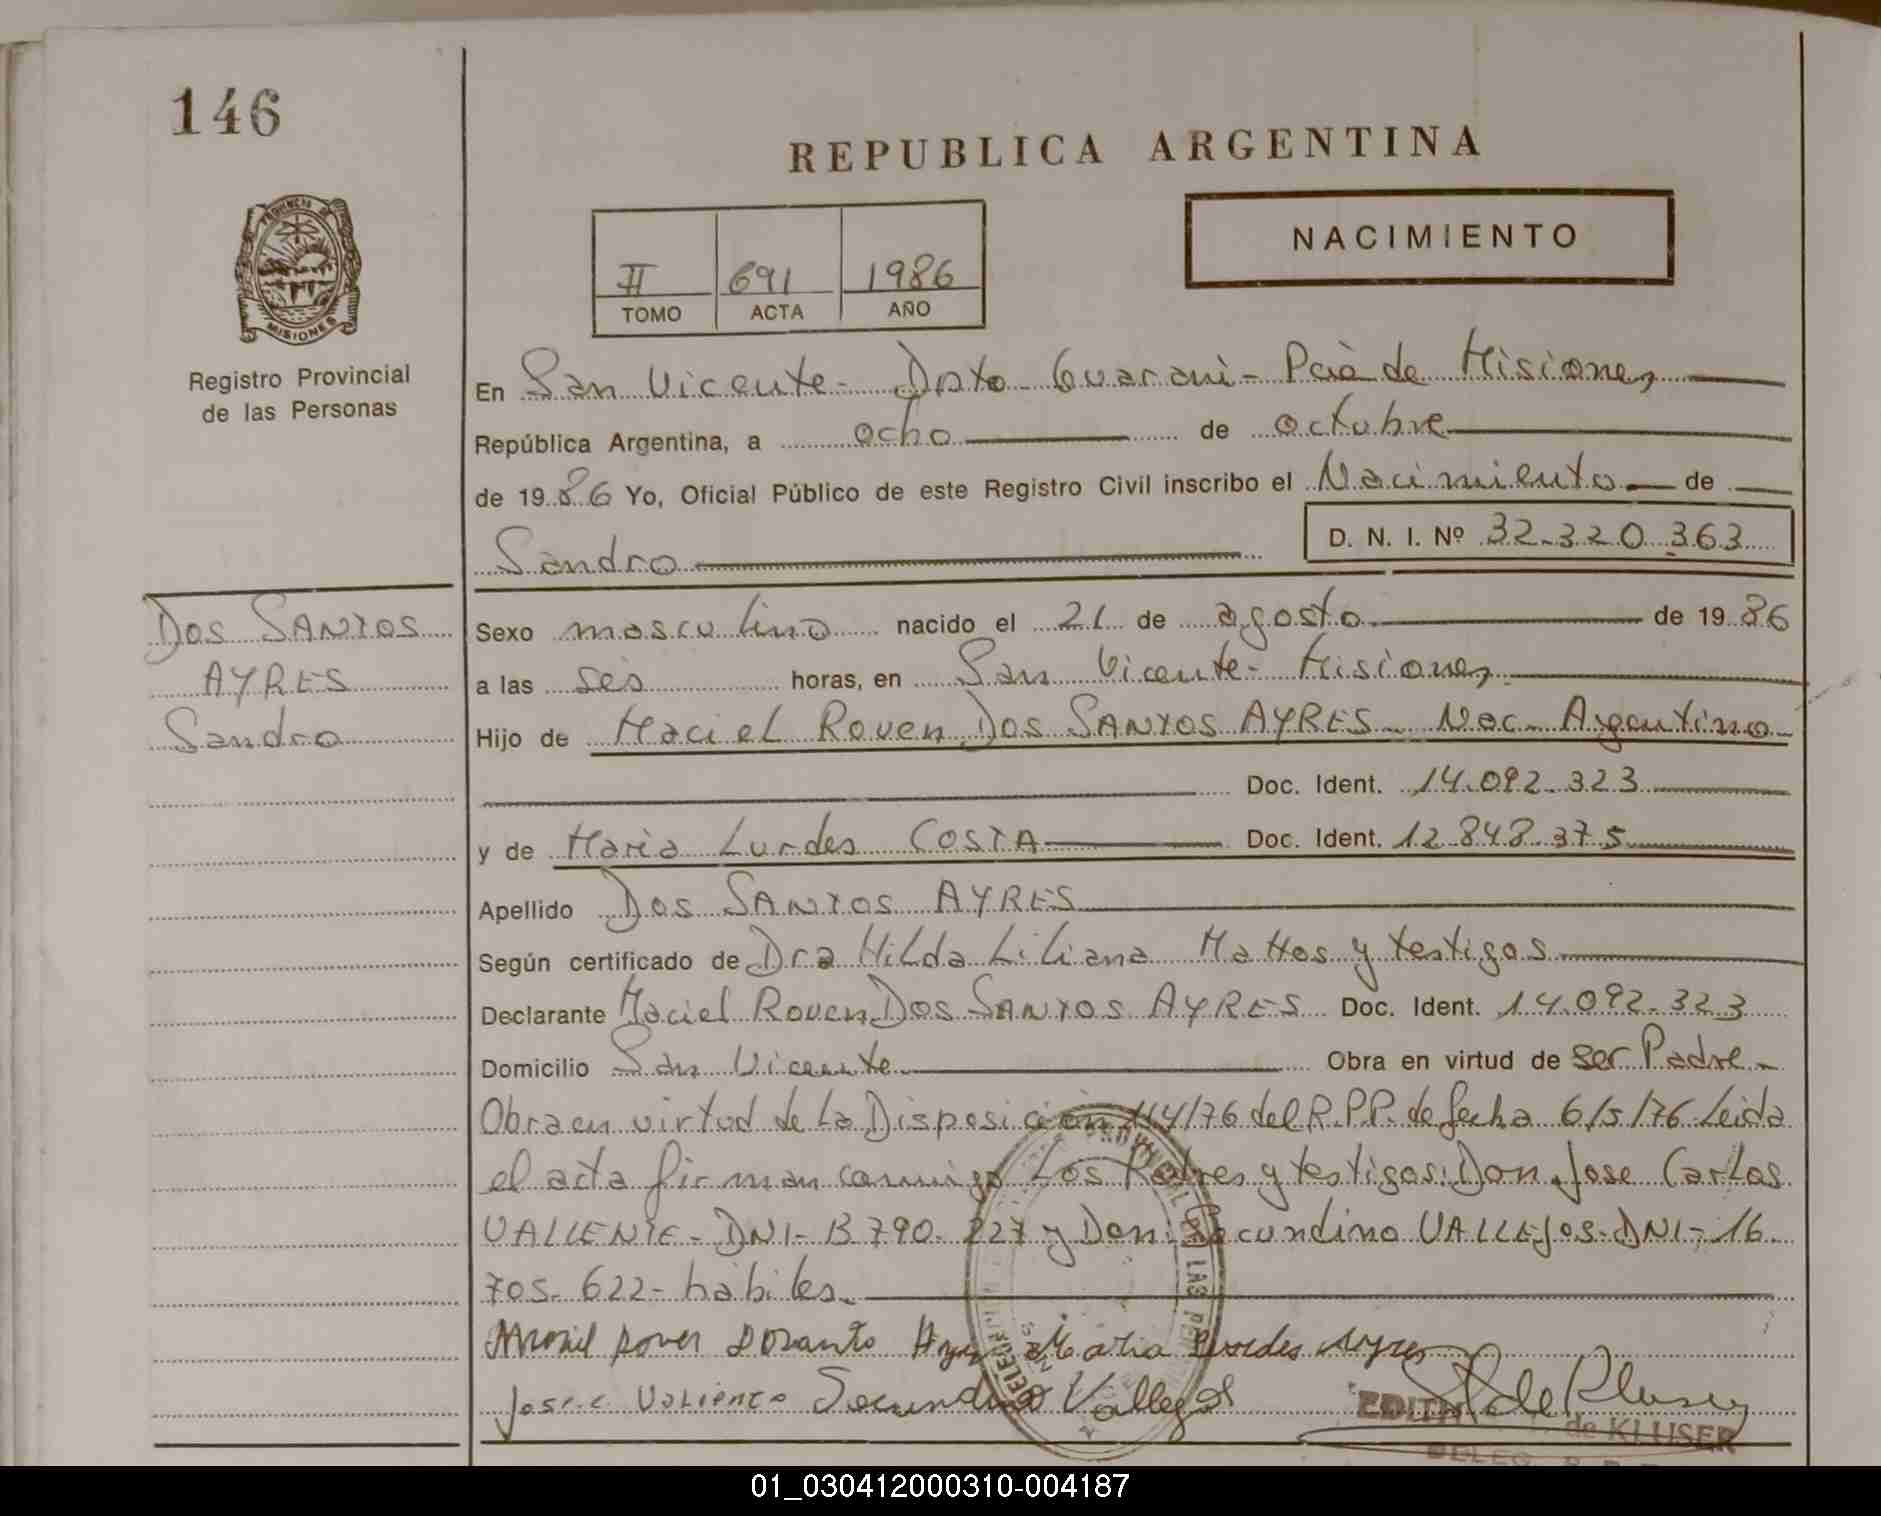 146
REPUBLICA ARGENTINA
NACIMIENTO
II 691 1986
TOMO ACTA AÑO
PROVINCIA DE
MISIONES
Registro Provincial
de las Personas
En San Vicente- Dpto Guarani- Pcia de Misiones
República Argentina, a ocho de octubre
de 1986 Yo, Oficial Público de este Registro Civil inscribo el Nacimiento de
Sandro
D. N. I. Nº 32.320.363
DOS SANTOS
AYRES
Sandro
Sexo masculino nacido el 21 de agosto de 1986
a las seis horas, en San Vicente- Misiones
Hijo de Maciel Roven DOS SANTOS AYRES- Nac- Argentino
Doc. Ident. 14.092.323
y de Maria Lurdes COSTA Doc. Ident. 12.848.375
Apellido DOS SANTOS AYRES
Según certificado de Dra Hilda Liliana Mattos y testigos
Declarante Maciel Roven DOS SANTOS AYRES Doc. Ident. 14.092.323
Domicilio San Vicente Obra en virtud de ser Padre-
Obra en virtud de La Disposición 114/76 del R.P.P. de fecha 6/5/76 Leida
el acta firman conmigo Los Padres y testigos: Don Jose Carlos
VALIENTE- DNI- 13.790.227 y Don Secundino VALLEJOS- DNI- 16.
705.622- habiles.
Maria Lurdes Ayres
Jose C Valiente Secundino Vallejos
EDITH de KLUSER
DELEG. R. P.
01_030412000310-004187